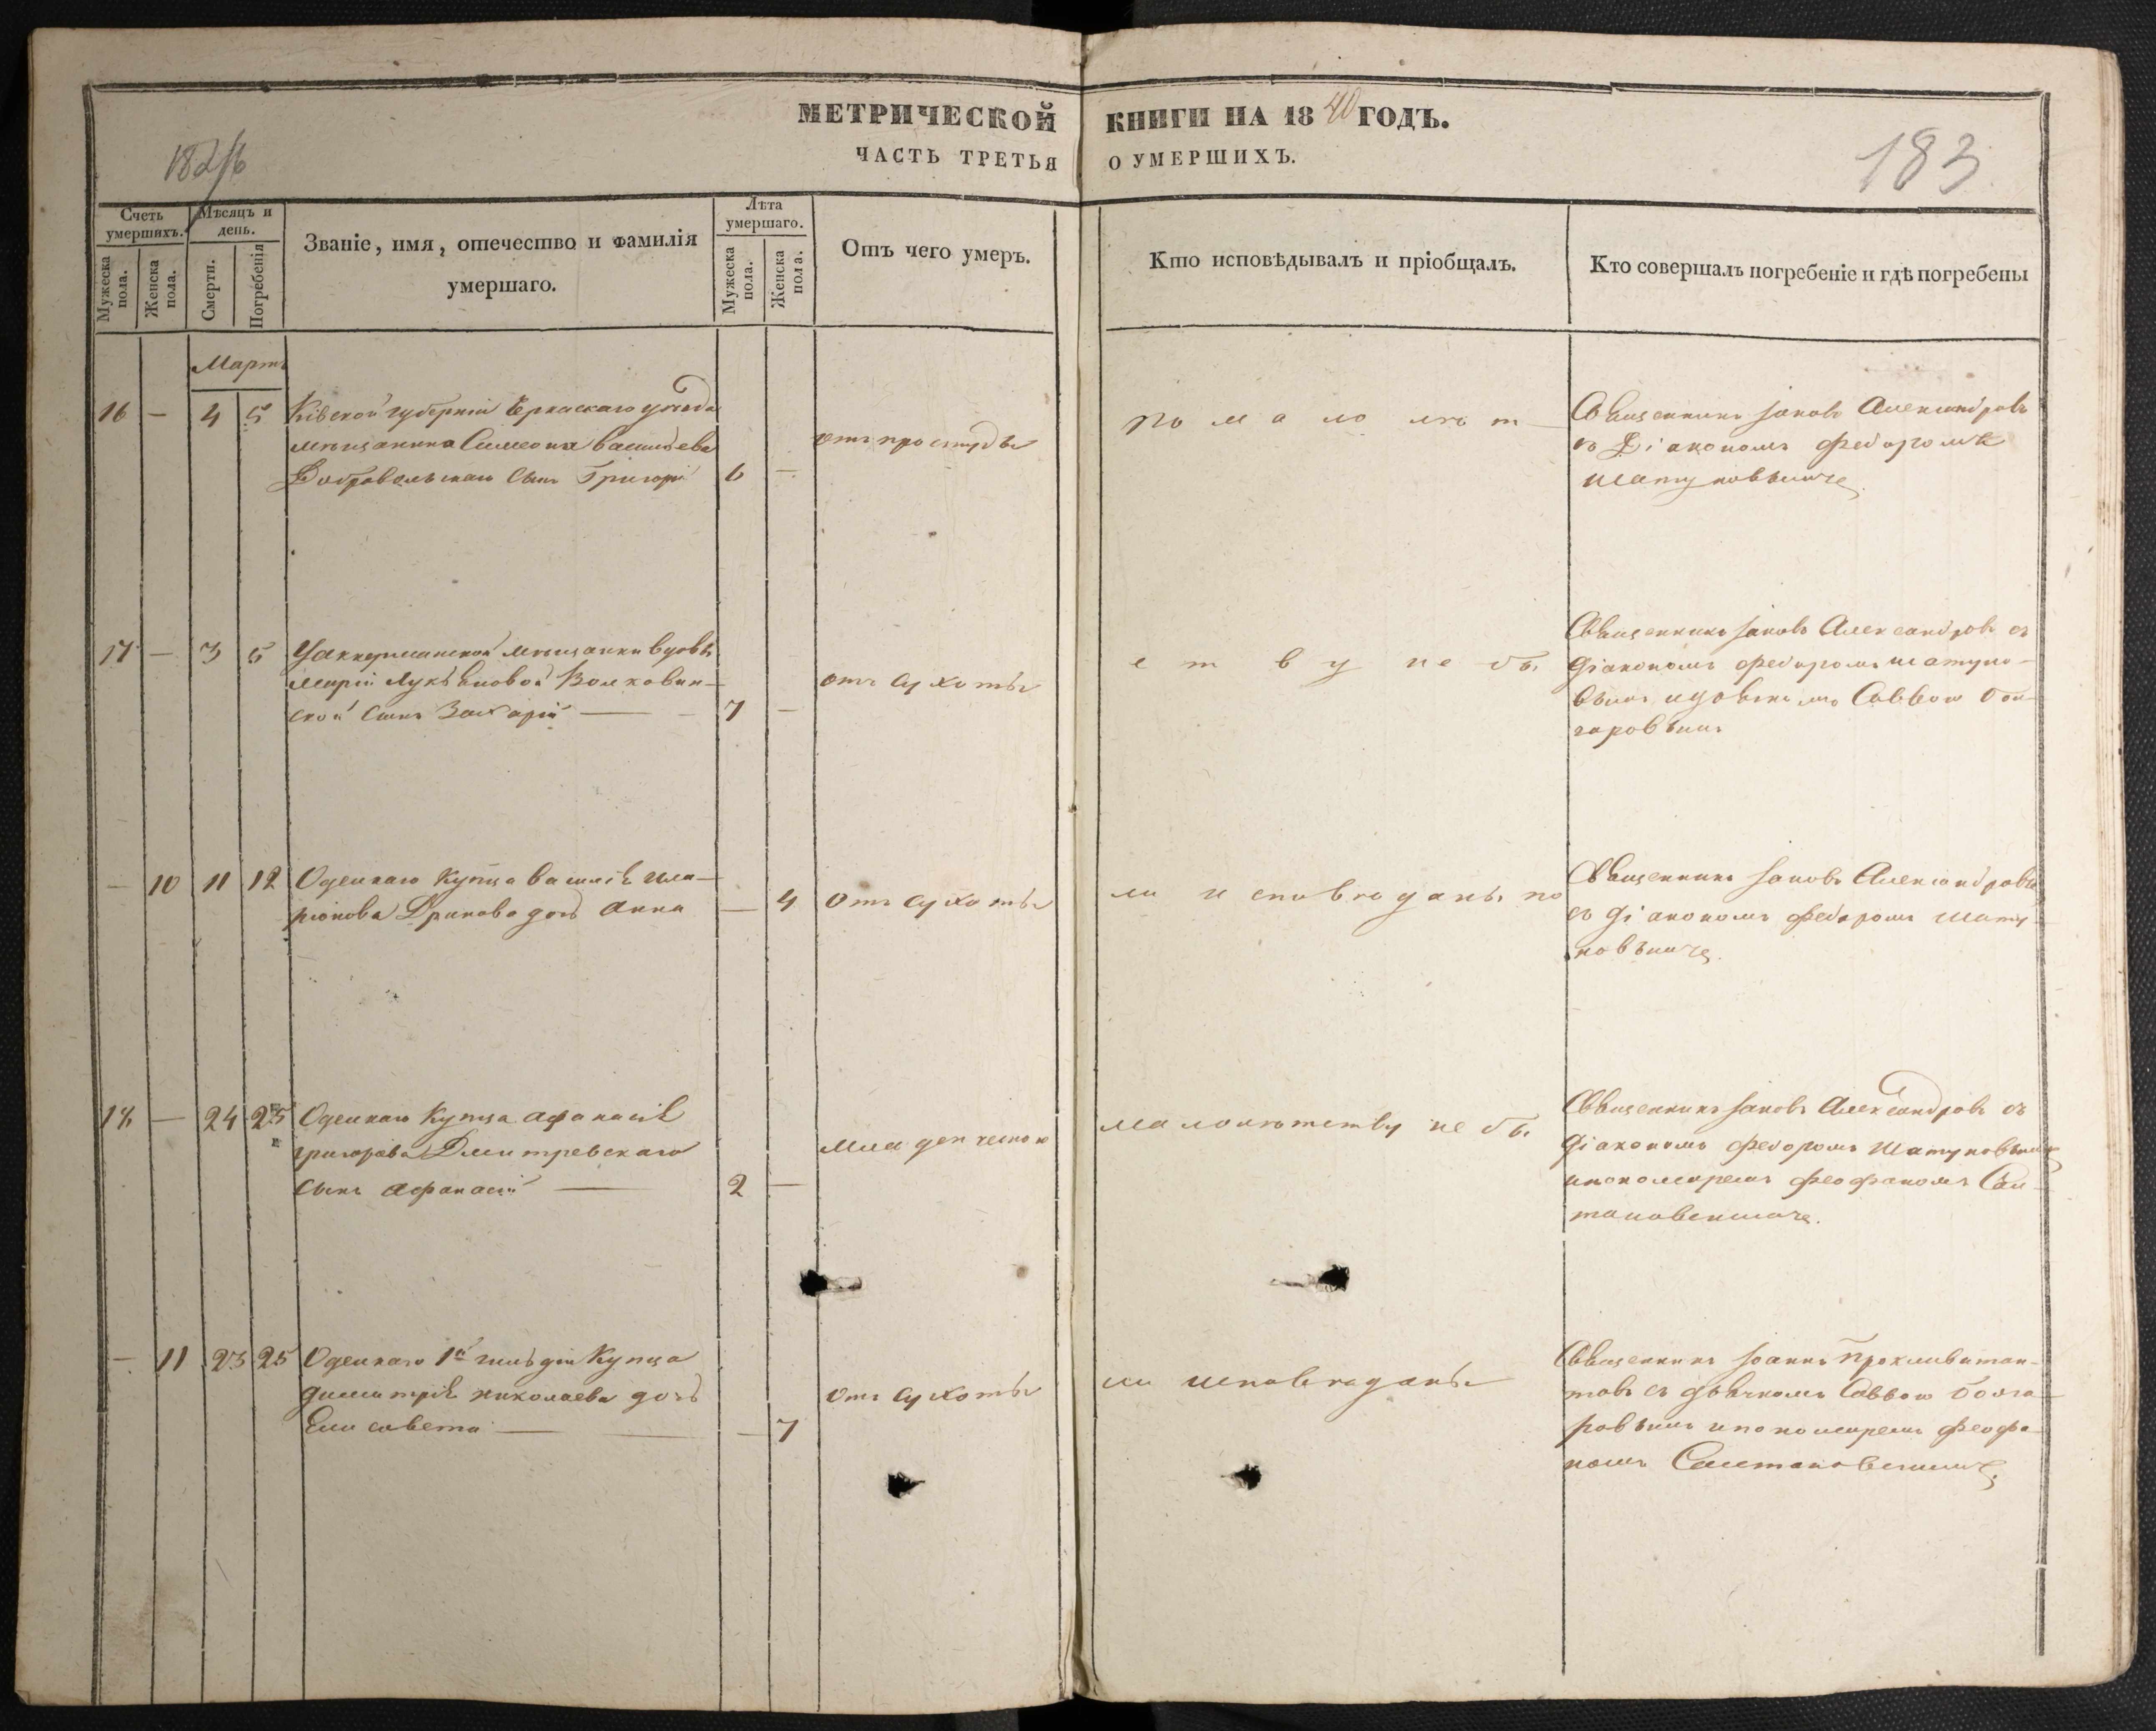 МЕТРИЧЕСКОЙ КНИГИ НА 1840 ГОДЪ.
ЧАСТЬ ТРЕТЬЯ О УМЕРШИХЪ.
183
Счетъ умершихъ.
Мужеска пола.
Женска пола.
Мѣсяцъ и день.
Смерти.
Погребенія
Званіе, имя, отечество и фамилія
умершаго.
Лѣта умершаго.
Мужеска пола.
Женска пола.
Отъ чего умеръ.
Кто исповѣдывалъ и пріобщалъ.
Кто совершалъ погребеніе и гдѣ погребены
Мартъ
16 — 4 5
Кіевской губерніи Черкаскаго уѣзда
мѣщанина Симеона Васильева
Добровольскаго сынъ Григорій 6 —
отъ простуды
по малолѣт
Священникъ Іаковъ Александровъ
съ Діакономъ Федоромъ
Шатуновымъ
17 — 3 5
Аккерманской мѣщанки вдовы
Маріи Лукьяновой Волковин-
ской сынъ Захарій — 7 —
отъ сухоты
етву не бы
Священникъ Іаковъ Александровъ съ
Діакономъ Федоромъ Шатуно-
вымъ и дьячкомъ Саввою Бол-
гаровымъ
— 10 11 12
Одескаго купца Василія Ила-
ріонова дочь Анна — 4
отъ сухоты
ли исповѣданы по
Священникъ Іаковъ Александровъ
съ Діакономъ Федоромъ Шату-
новымъ
18 — 24 25
Одескаго купца Афанасія
Григорьева Дмитревскаго
сынъ Афанасій — 2 —
младенческою
малолѣтству не бы
Священникъ Іаковъ Александровъ съ
Діакономъ Федоромъ Шатуновымъ
и пономаремъ Феофаномъ
— 11 23 25
Одескаго 1й гильдіи купца
Димитрія Николаева дочь
Елисавета — — 7
отъ сухоты
ли исповѣданы
Священникъ Іоаннъ
съ дьячкомъ Саввою Болга-
ровымъ и пономаремъ Феофа-
номъ